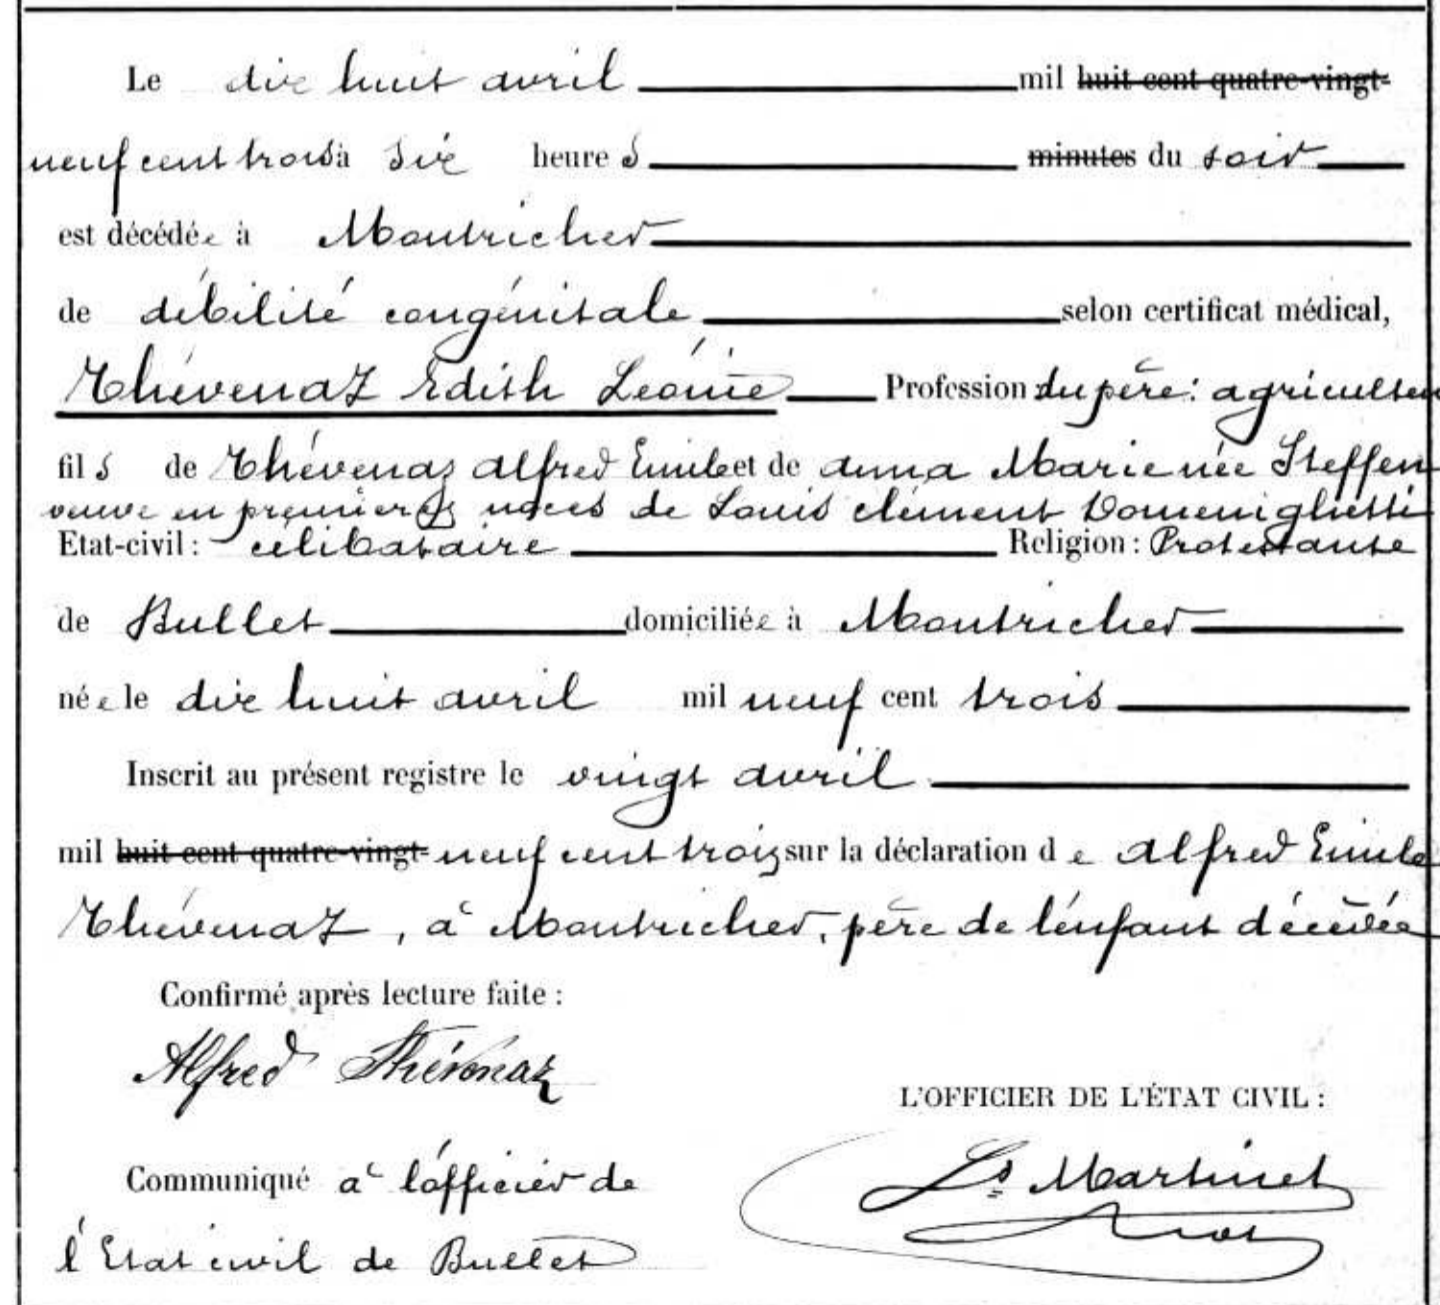 Le dix huit avril mil huit cent quatre-vingt-
neuf cent trois à six heures minutes du soir
est décédée à Montricher
de débilité congénitale selon certificat médical,
Thévenaz Edith Léonie Profession du père: agriculteu
fils de Thévenaz Alfred Emile et de Anna Marie née Steffen
veuve en premières noces de Louis Clément Domenighetti
Etat-civil: célibataire Religion: Protestante
de Bullet domiciliée à Montricher
née le dix huit avril mil neuf cent trois
Inscrit au présent registre le vingt avril
mil huit cent quatre-vingt- neuf cent trois sur la déclaration de Alfred Emile
Thévenaz, à Montricher, père de l'enfant décédée
Confirmé après lecture faite:
Alfred Thévenaz
L'OFFICIER DE L'ÉTAT CIVIL:
Communiqué à l'officier de
Ls Martinet
l'Etat civil de Bullet